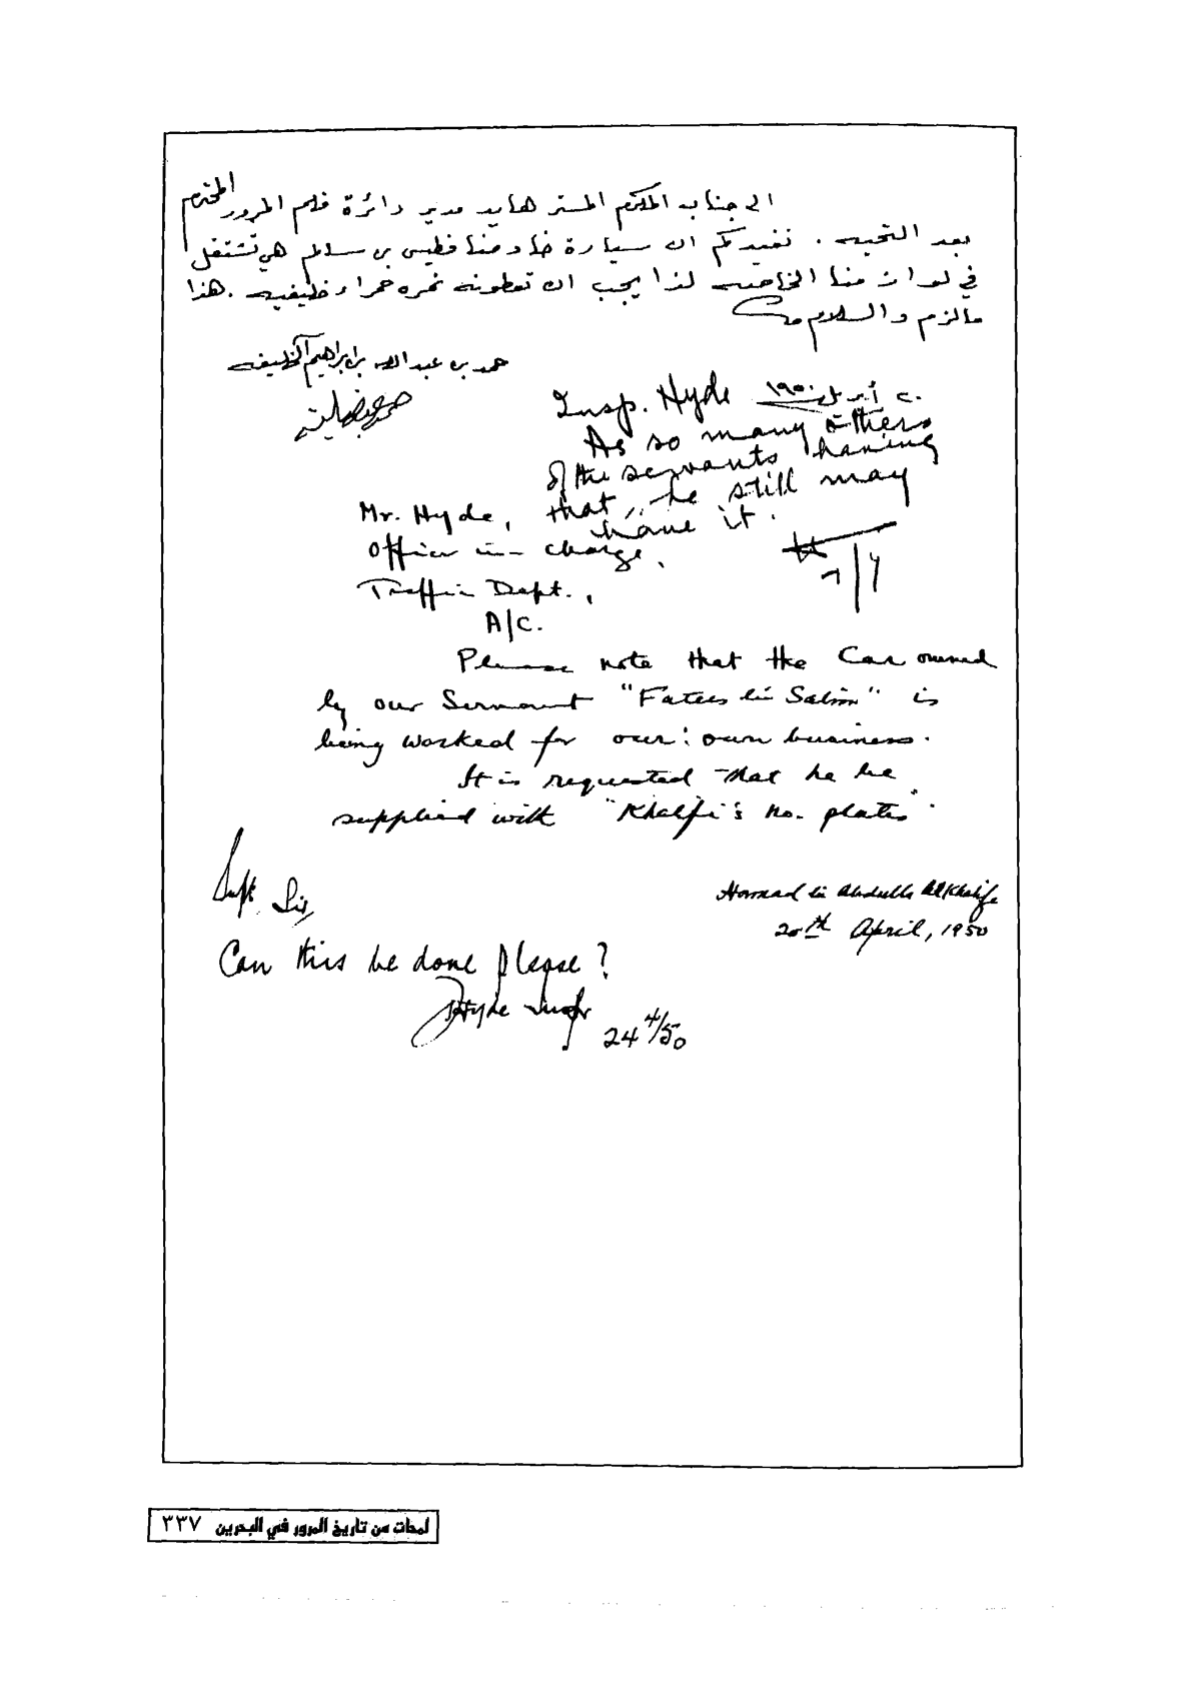 الى جناب المكرم المستر هايد مدير دائرة قلم المرور المحترم
بعد التحيه . نفيدكم ان سيارة خادمنا فطيس بن سالم هي تشتغل
في لوازمنا الخاصه لذا يجب ان تعطونه نمره حمراء خليفيه . هذا
مالزم والسلام
حمد بن عبد الله بن ابراهيم آل خليفه
٢٠ أبريل ١٩٥٠
Insp. Hyde
As so many others
of the servants having
that, he still may
have it.
7/4
Mr. Hyde,
Officer in-charge,
Traffic Dept.,
A/C.
Please note that the Car owned
by our Servant "Fatees bin Salim" is
being worked for our own business.
It is requested that he be
supplied with "Khalfi's no. plates".
Hamad bin Abdulla Al Khalifa
20th April, 1950
Supt. Sir,
Can this be done please?
Hyde Insp
24 4/50
لمحات من تاريخ المرور في البحرين ٣٣٧